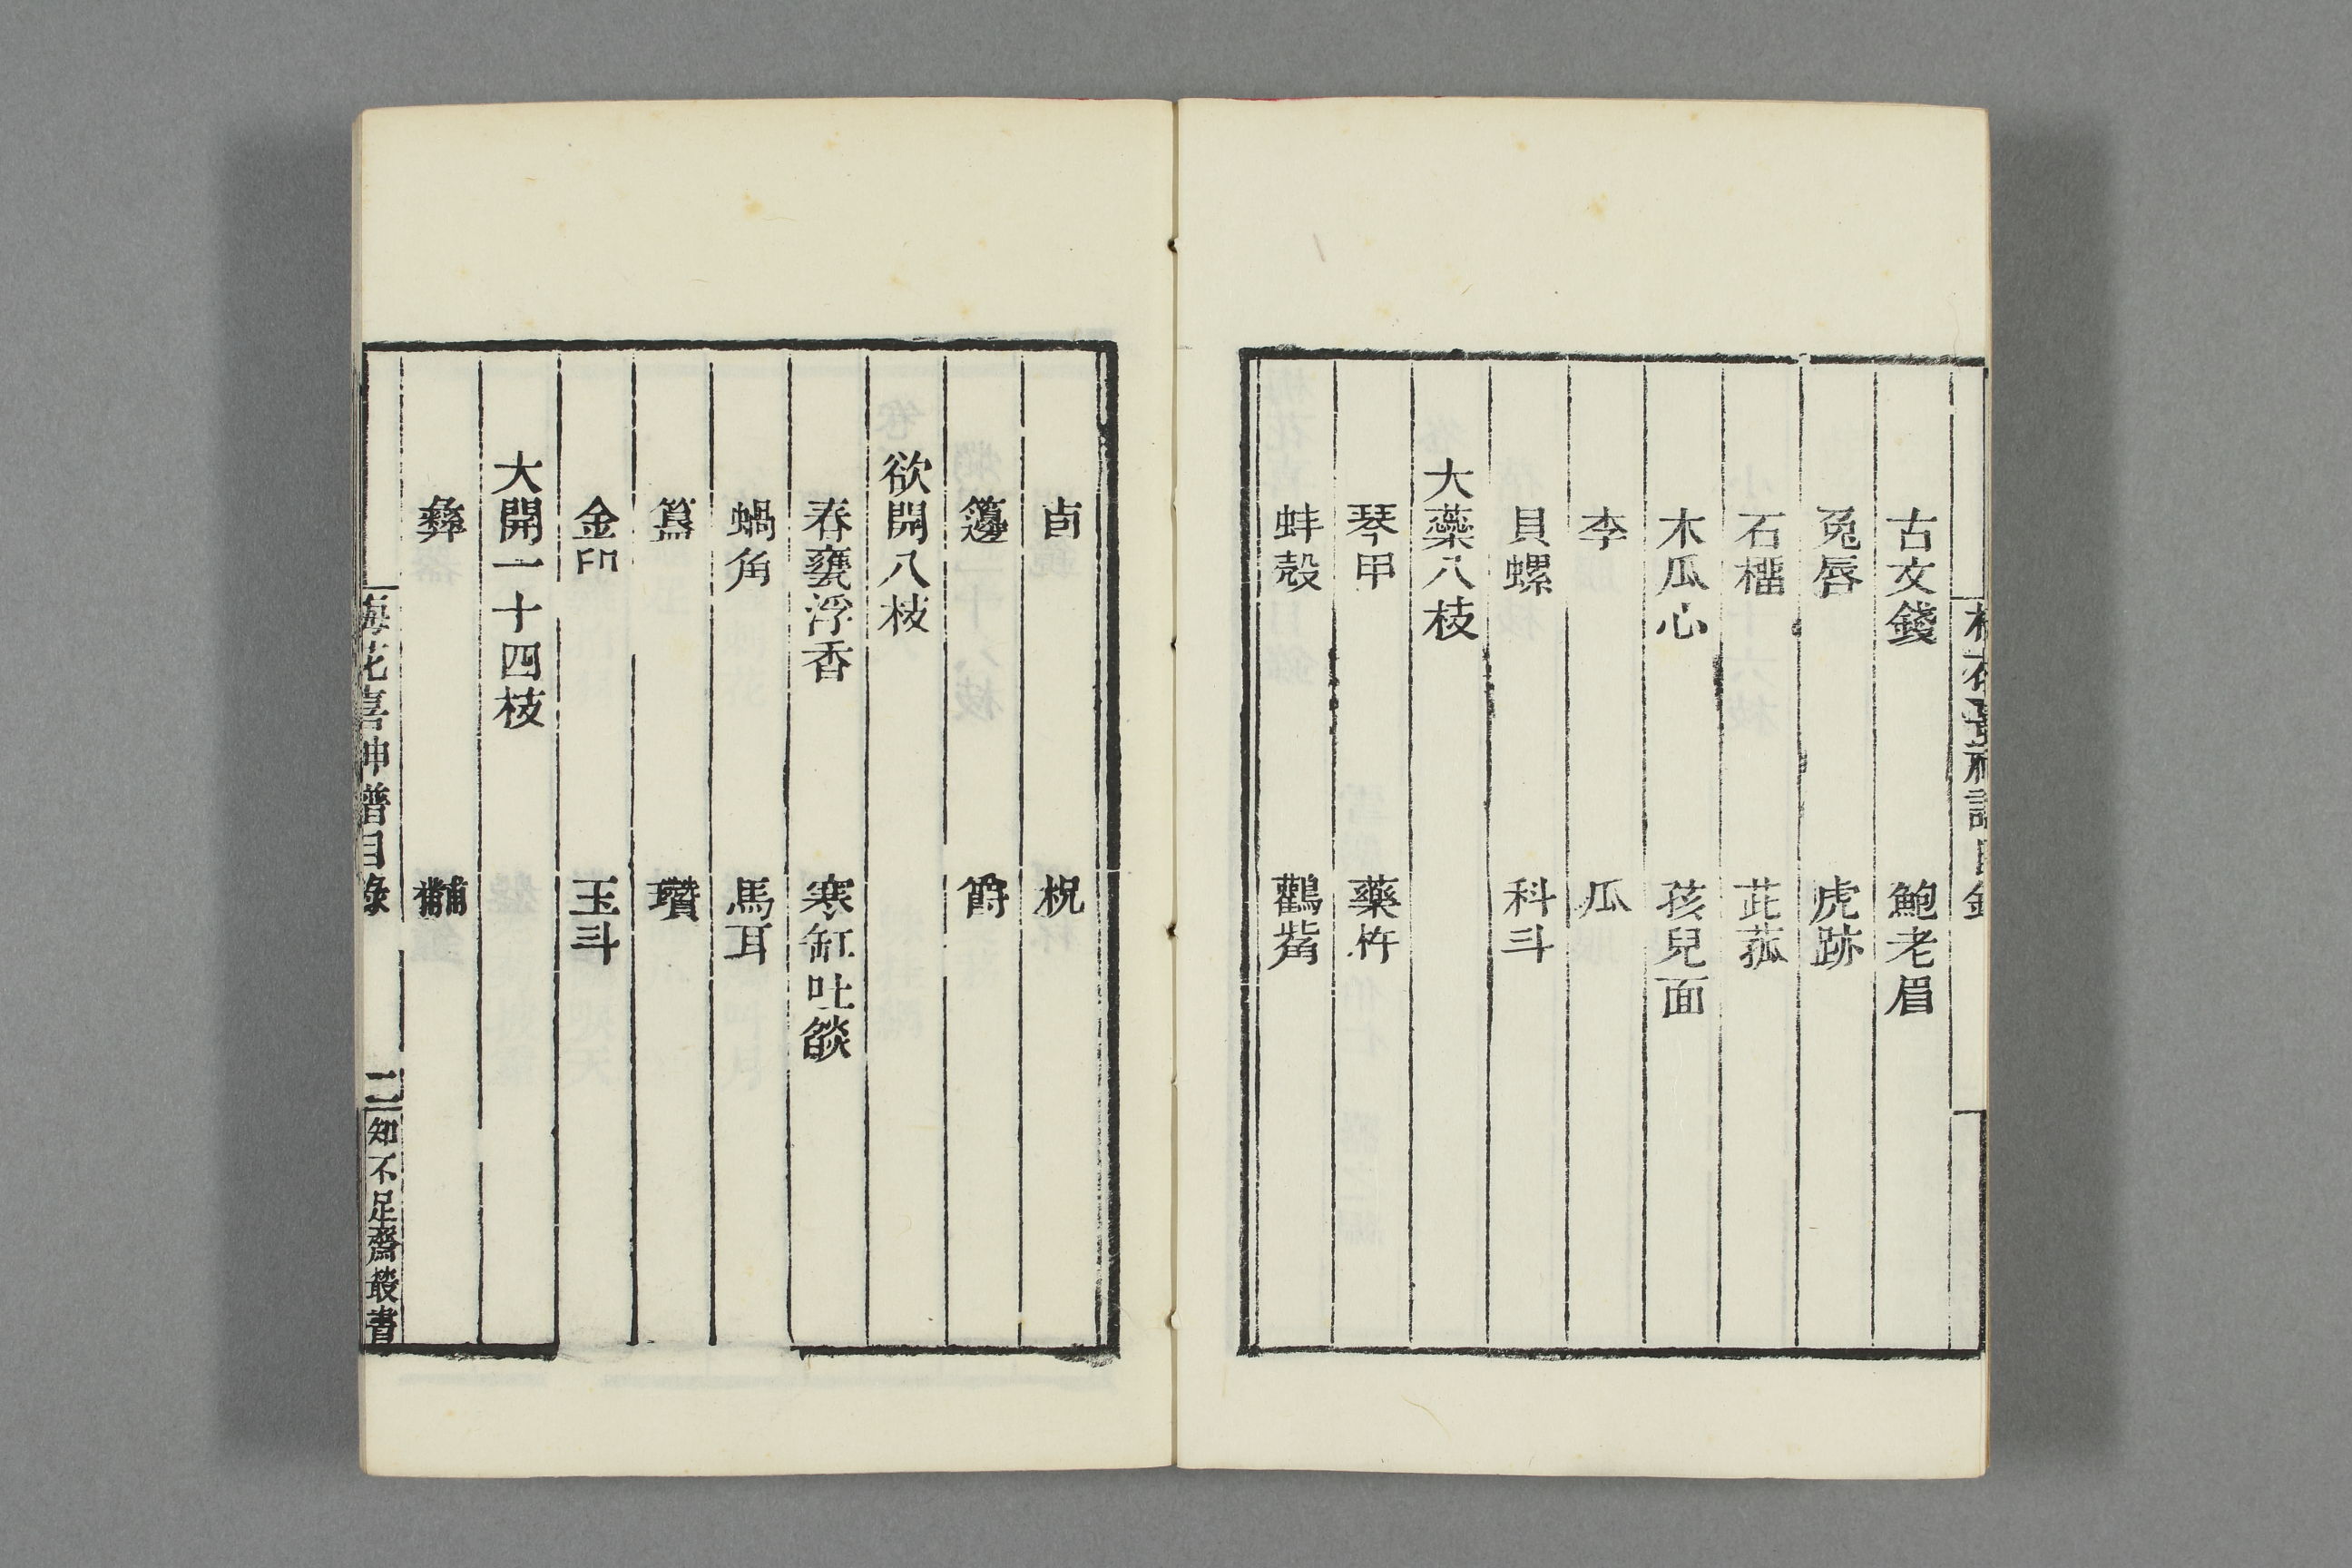 古文錢　鮑老眉
兎唇　虎跡
石橊　茈菰
木瓜心　孩兒面
李　瓜
貝螺　科斗
大蘂八枝
琴甲　藥杵
蚌殼　鸛觜
卣　柷
籩　爵
欲開八枝
春甕浮香　寒缸吐燄
蝸角　馬耳
簋　瓚
金印　玉斗
大開一十四枝
彝　黼
梅花喜神譜目錄　二　知不足齋叢書